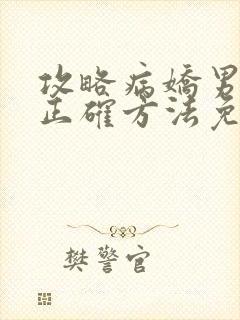 攻略病嬌男
正確方法免
樊警官